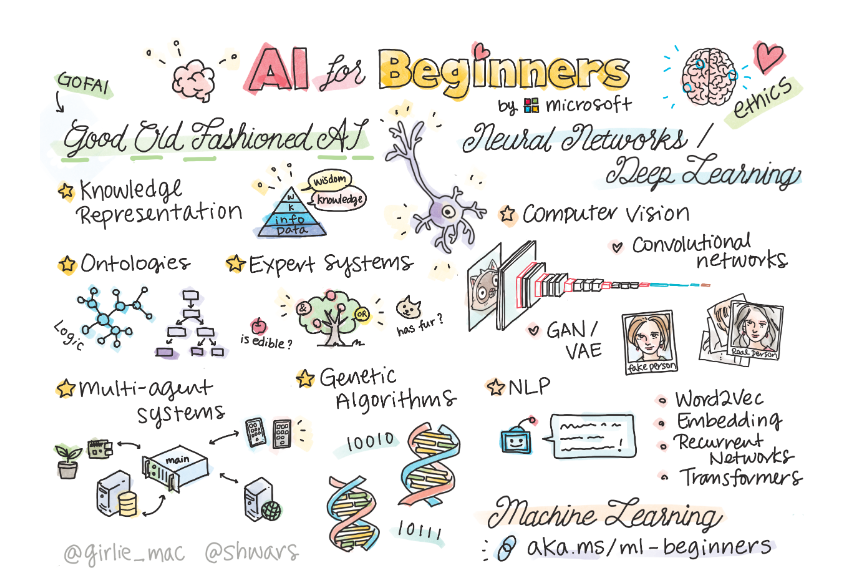 AI for Beginners
by microsoft
GOFAI
ethics
Good Old Fashioned AI
Knowledge
Representation
wisdom
knowledge
W
K
info
DATA
Ontologies
Logic
Expert Systems
is edible?
&
OR
has fur?
Multi-agent
systems
main
Genetic
Algorithms
10010
10111
Neural Networks /
Deep Learning
Computer Vision
Convolutional
networks
GAN/
VAE
fake person
Real person
NLP
Word2Vec
Embedding
Recurrent
Networks
Transformers
Machine Learning
aka.ms/ml-beginners
@girlie_mac @shwars